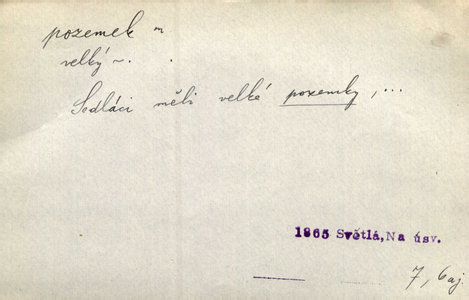 pozemek m
velký ~.
Sedláci měli velké pozemky, ...
1865 Světlá, Na úsv.
7, 6aj